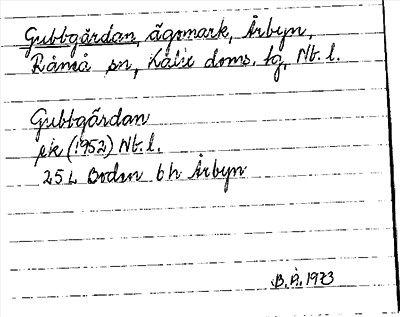 Gubbgårdan, ägomark, Årbyn,
Råneå sn, Kalix doms. tg, Nb. l.
Gubbgårdan
ek (1952) Nb. l.
25 L Boden 6 h Årbyn
B. Å. 1973